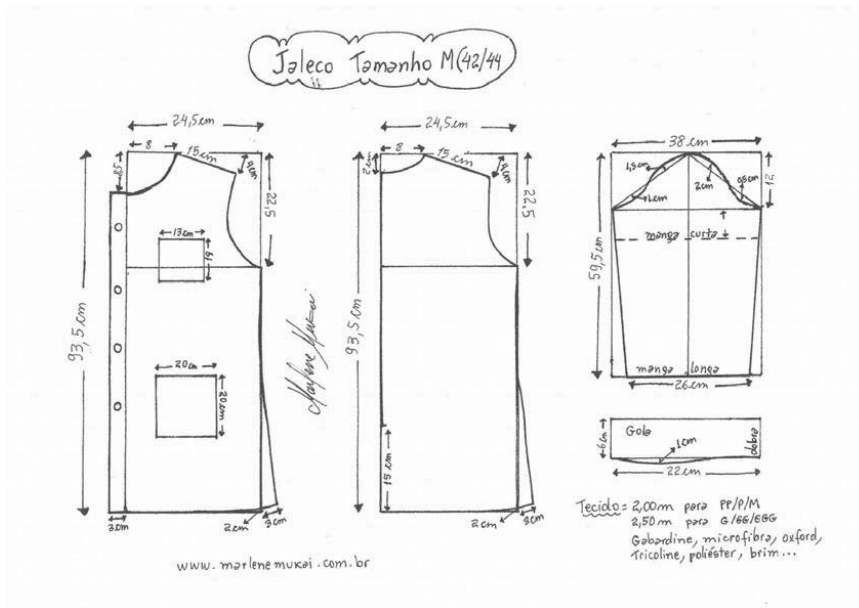 Jaleco Tamanho M(42/44
24,5cm
8
15cm
4cm
8,5
22,5
13cm
19
93,5cm
20cm
20cm
3cm
2cm
3cm
Marlene Mukai
24,5cm
8
15cm
4cm
2cm
22,5
93,5cm
15cm
2cm
3cm
38cm
1,5cm
2cm
0,5cm
1cm
12
manga curta
59,5cm
manga longa
26cm
Gola
6cm
1cm
dobra
22cm
Tecido = 2,00m para PP/P/M
2,50m para G/GG/EGG
Gabardine, microfibra, oxford,
Tricoline, poliéster, brim...
www.marlenemukai.com.br